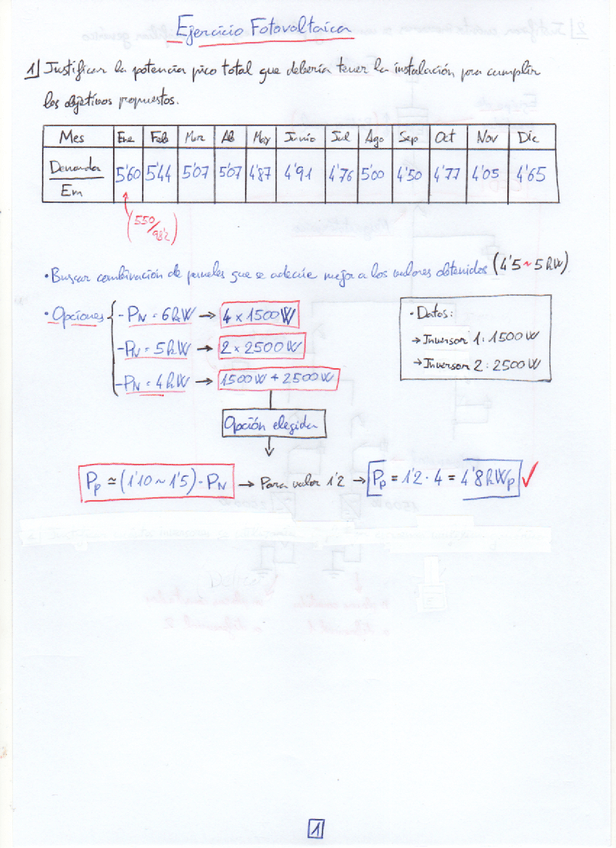 Ejercicio Fotovoltaica
1) Justificar la potencia pico total que debería tener la instalación para cumplir
los objetivos propuestos.
Mes Ene Feb Mar Ab May Junio Jul Ago Sep Oct Nov Dic
Demanda/Em 5'60 5'44 5'07 5'07 4'87 4'91 4'76 5'00 4'50 4'77 4'05 4'65
(550/98'2)
• Buscar combinación de paneles que se adecúe mejor a los valores obtenidos (4'5 ~ 5 kW)
• Opciones
- PN = 6 kW → 4 x 1500 W
- PN = 5 kW → 2 x 2500 W
- PN = 4 kW → 1500 W + 2500 W
• Datos:
→ Inversor 1: 1500 W
→ Inversor 2: 2500 W
Opción elegida
Pp ≃ (1'10 ~ 1'5) · PN → Para valor 1'2 → Pp = 1'2 · 4 = 4'8 kWp ✓
1